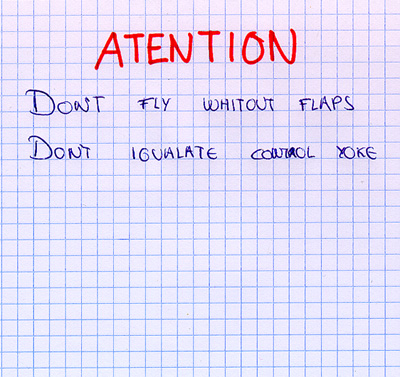 ATENTION
DON'T FLY WHITOUT FLAPS
DONT IGUALATE CONTROL YOKE